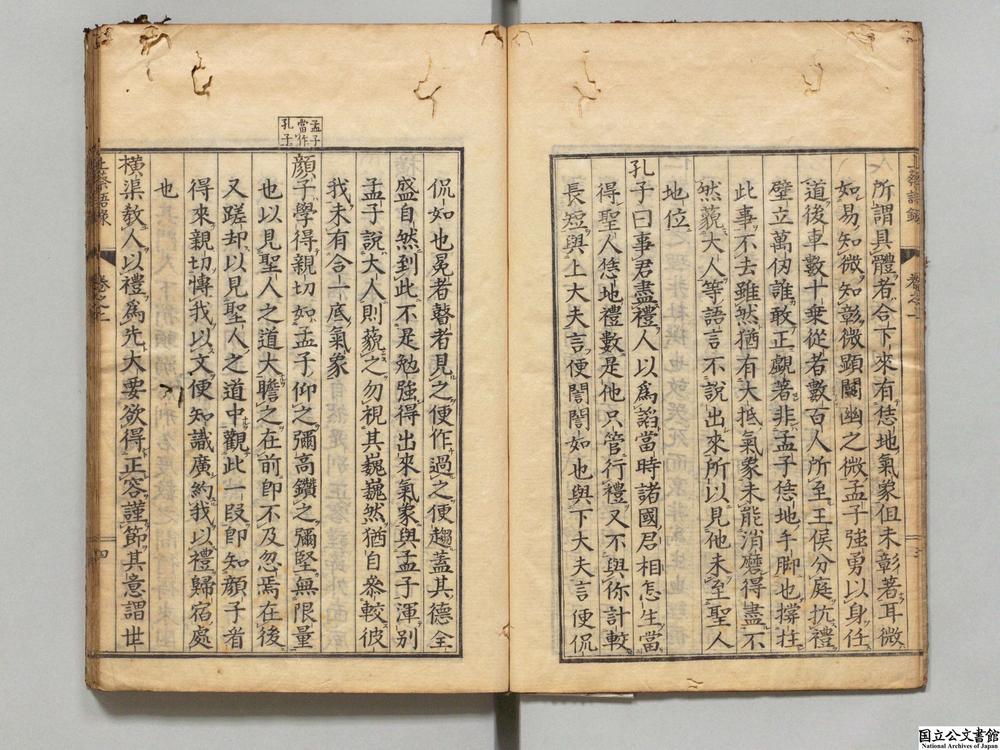 所謂具體者合下來有恁地氣象但未彰著耳微
如易知微知彰微顯闡幽之微孟子強勇以身任
道後車數十乗從者數百人所至王侯分庭抗禮
壁立萬仞誰敢正覷著非孟子恁地手脚也撐拄
此事不去雖然猶有大抵氣象未能消磨得盡不
然藐大人等語言不說出來所以見他未至聖人
地位
孔子曰事君盡禮人以為諂當時諸國君相怎生當
得聖人恁地禮數是他只管行禮又不與你計較
長短與上大夫言便誾誾如也與下大夫言便侃
上蔡語録
卷之上
侃如也冕者瞽者見之便作過之便趨蓋其德全
盛自然到此不是勉強得出來氣象與孟子渾别
孟子說大人則藐之勿視其巍巍然猶自參較彼
我未有合一底氣象
孟子
當作
孔子
顔子學得親切如孟子仰之彌高鑽之彌堅無限量
也以見聖人之道大瞻之在前即不及忽焉在後
又蹉却以見聖人之道中觀此一段即知顔子者
得來親切博我以文便知識廣約我以禮歸宿處
也
横渠教人以禮為先大要欲得正容謹節其意謂世
上蔡語録
卷之上
四
国立公文書館
National Archives of Japan